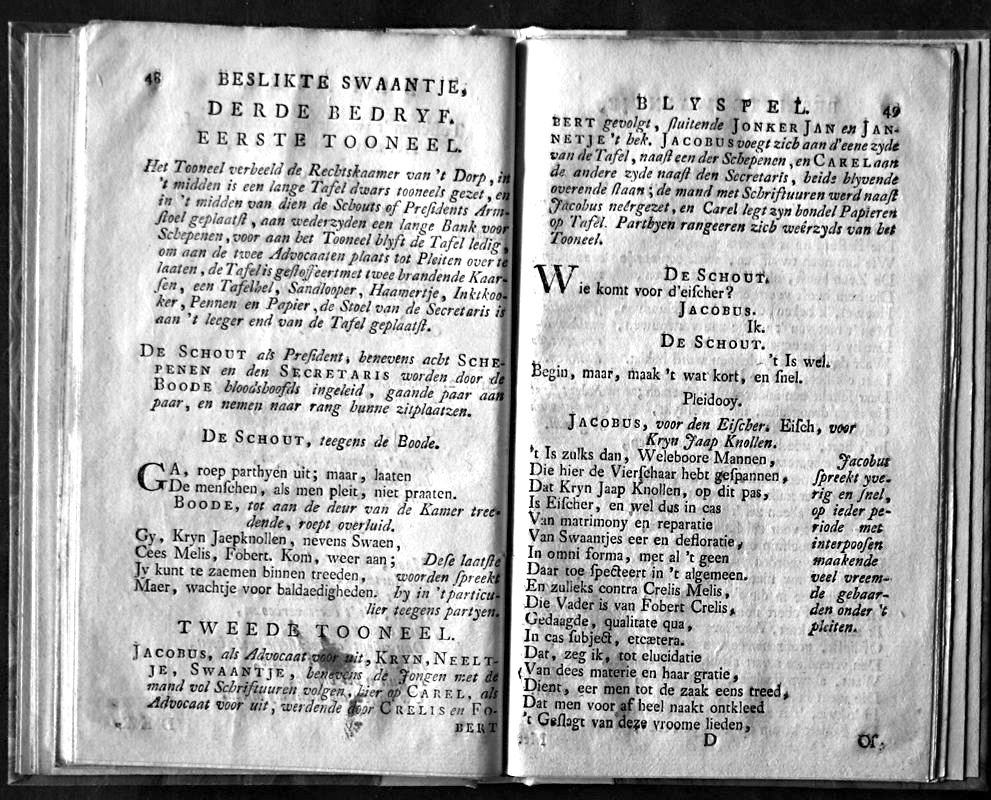 48 BESLIKTE SWAANTJE,
DERDE BEDRYF.
EERSTE TOONEEL.
Het Tooneel verbeeld de Rechtskaamer van 't Dorp, in
't midden is een lange Tafel dwars tooneels gezet, en
in 't midden van dien de Schouts of Preſidents Arm-
ſtoel geplaatſt, aan wederzyden een lange Bank voor
Schepenen, voor aan het Tooneel blyft de Tafel ledig,
om aan de twee Advocaaten plaats tot Pleiten over te
laaten, de Tafel is geſtoffeert met twee brandende Kaar-
ſen, een Tafelbel, Sandlooper, Haamertje, Inktkoo-
ker, Pennen en Papier, de Stoel van de Secretaris is
aan 't leeger end van de Tafel geplaatſt.
DE SCHOUT als Preſident, benevens acht SCHE-
PENEN en den SECRETARIS worden door de
BOODE bloodshoofds ingeleid, gaande paar aan
paar, en nemen naar rang hunne zitplaatzen.
DE SCHOUT, teegens de Boode.
GA, roep parthyen uit; maar, laaten
De menſchen, als men pleit, niet praaten.
BOODE, tot aan de deur van de Kamer tree-
dende, roept overluid.
Gy, Kryn Jaepknollen, nevens Swaen,
Cees Melis, Fobert. Kom, weer aan; Deſe laatſte
Jy kunt te zaemen binnen treeden, woorden ſpreekt
Maer, wachtje voor baldaedigheden. hy in 't particu-
lier teegens partyen.
TWEEDE TOONEEL.
JACOBUS, als Advocaat voor uit, KRYN, NEELT-
JE, SWAANTJE, benevens de Jongen met de
mand vol Schriftuuren volgen, hier op CAREL, als
Advocaat voor uit, werdende door CRELIS en FO-
BERT
BLYSPEL. 49
BERT gevolgt, ſluitende JONKER JAN en JAN-
NETJE 't hek. JACOBUS voegt zich aan d'eene zyde
van de Tafel, naaſt een der Schepenen, en CAREL aan
de andere zyde naaſt den Secretaris, beide blyvende
overende ſtaan; de mand met Schriftuuren werd naaſt
Jacobus neêrgezet, en Carel legt zyn bondel Papieren
op Tafel. Parthyen rangeeren zich weêrzyds van het
Tooneel.
DE SCHOUT.
Wie komt voor d'eiſcher?
JACOBUS.
Ik.
DE SCHOUT.
't Is wel.
Begin, maar, maak 't wat kort, en ſnel.
Pleidooy.
JACOBUS, voor den Eiſcher. Eiſch, voor
Kryn Jaap Knollen.
't Is zulks dan, Weleboore Mannen, Jacobus
Die hier de Vierſchaar hebt geſpannen, ſpreekt yve-
Dat Kryn Jaap Knollen, op dit pas, rig en ſnel,
Is Eiſcher, en wel dus in cas op ieder pe-
Van matrimony en reparatie riode met
Van Swaantjes eer en defloratie, interpooſen
In omni forma, met al 't geen maakende
Daar toe ſpecteert in 't algemeen. veel vreem-
En zulleks contra Crelis Melis, de gebaar-
Die Vader is van Fobert Crelis, den onder 't
Gedaagde, qualitate qua, pleiten.
In cas ſubject, etcætera.
Dat, zeg ik, tot elucidatie
Van dees materie en haar gratie,
Dient, eer men tot de zaak eens treed,
Dat men voor af heel naakt ontkleed
't Geſlagt van deze vroome lieden,
D Of,